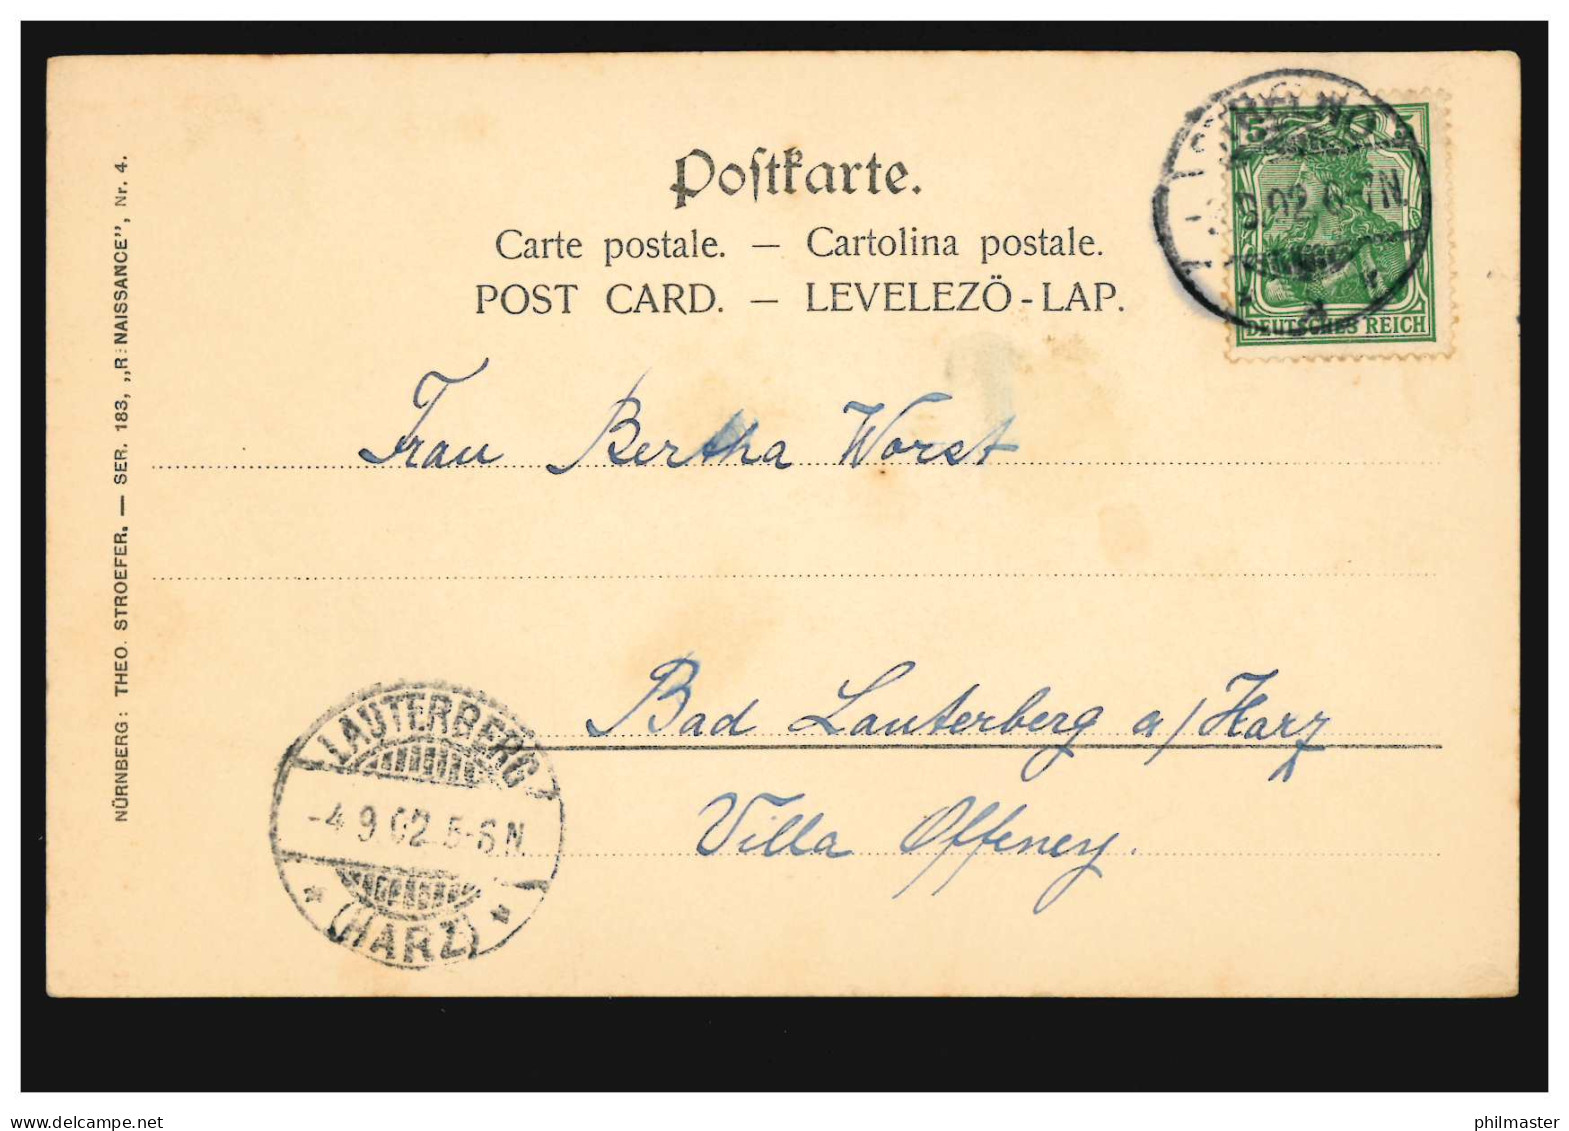 Postkarte.
Carte postale. — Cartolina postale.
POST CARD. — LEVELEZÖ-LAP.
5
02 6-7N
DEUTSCHES REICH
NÜRNBERG: THEO. STROEFER. — SER. 183, „RENAISSANCE”, Nr. 4.
Frau Bertha Worst
Bad Lauterberg a/Harz
Villa Offeney.
LAUTERBERG
-4 9 02 5-6N
* (HARZ) *
the-stamp.eu
philmaster